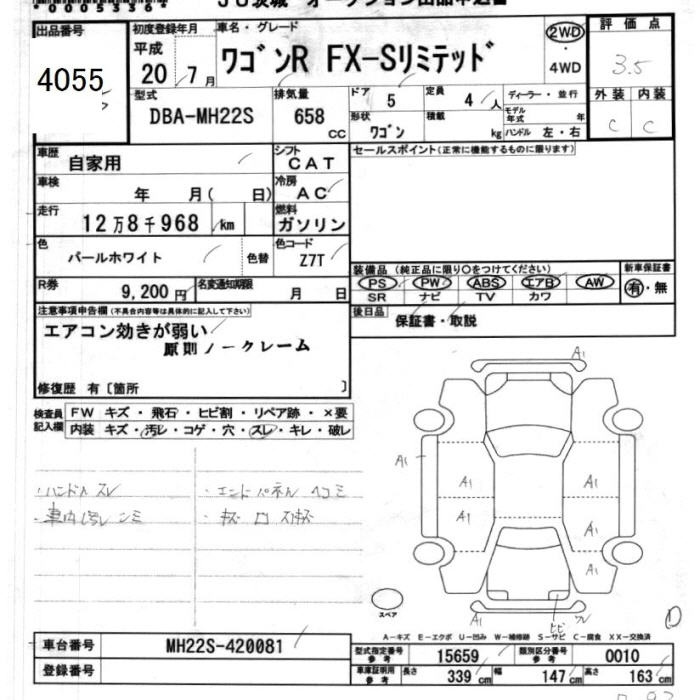 *00053366*
JU茨城 オークション出品申込書
出品番号 4055
初度登録年月 平成 20年 7月
車名・グレード ワゴンR FX-Sリミテッド
2WD・4WD
評価点 3.5
外装 C 内装 C
型式 DBA-MH22S
排気量 658 CC
ドア 5
定員 4人
形状 ワゴン
積載 kg
ディーラー・並行
モデル年式 年
ハンドル 左・右
車歴 自家用
シフト CAT
セールスポイント(正常に機能するものに限ります)
車検 年 月( 日)
冷房 AC
走行 12万8千968 km
燃料 ガソリン
色 パールホワイト 色替
色コード Z7T
装備品 (純正品に限り○をつけてください)
PS PW ABS エアB AW
SR ナビ TV カワ
新車保証書 有・無
R券 9,200円
名変通知期限 月 日
後日品 保証書・取説
注意事項申告欄(不具合内容等は具体的に記入して下さい)
エアコン効きが弱い
原則ノークレーム
修復歴 有〔箇所 〕
検査員記入欄
FW キズ・飛石・ヒビ割・リペア跡・×要
内装 キズ・汚レ・コゲ・穴・スレ・キレ・破レ
・ハンドル スレ
・車内汚レ シミ
・エンドパネル ヘコミ
・キズ ロ スキズ
A1
A1
A1 A1
A1 A1
A1
A1
ヒビ
スペア
D
A-キズ E-エクボ U-凹み W-補修跡 S-サビ C-腐食 XX-交換済
車台番号 MH22S-420081
登録番号
型式指定番号 参考 15659
類別区分番号 参考 0010
車庫証明用 参考 長さ 339cm 幅 147cm 高さ 163cm